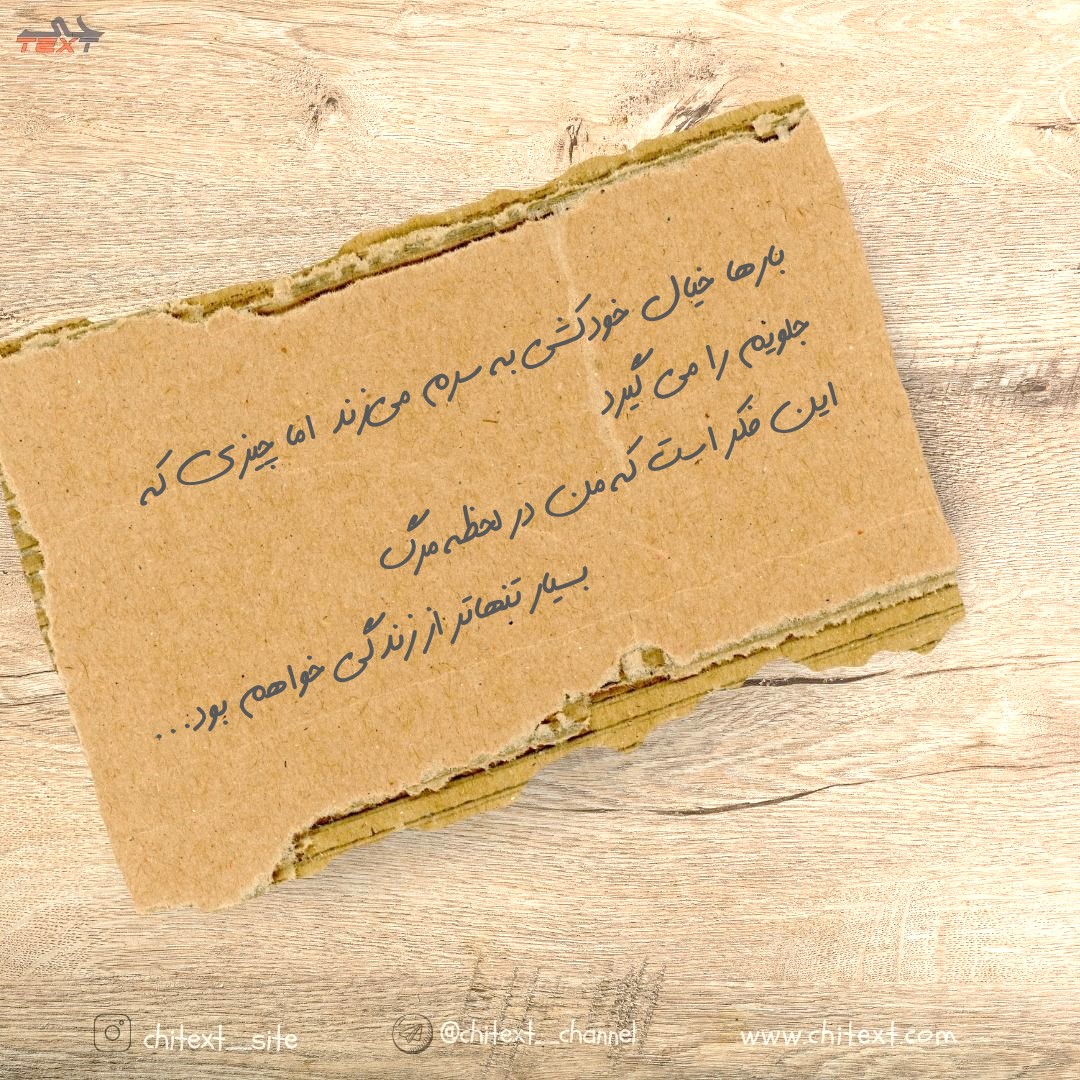 TEXT
بارها خیال خودکشی به سرم می‌زند اما چیزی که
جلویم را می گیرد
این فکر است که من در لحظه مرگ
بسیار تنهاتر از زندگی خواهم بود...
chitext_site
@chitext_channel
www.chitext.com